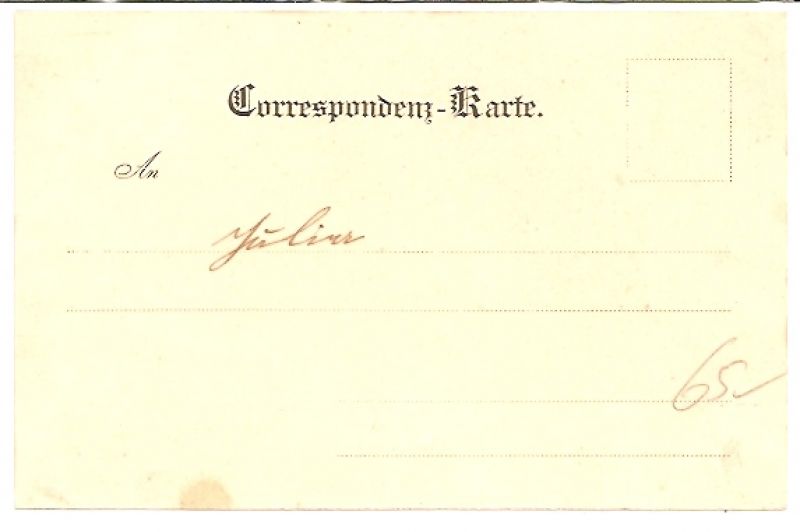 Correspondenz-Karte.
An
65